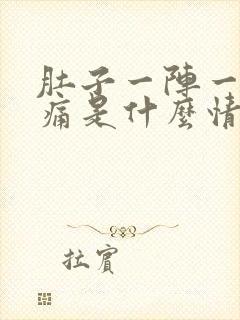 肚子一陣一
痛是什麼情
拉賓